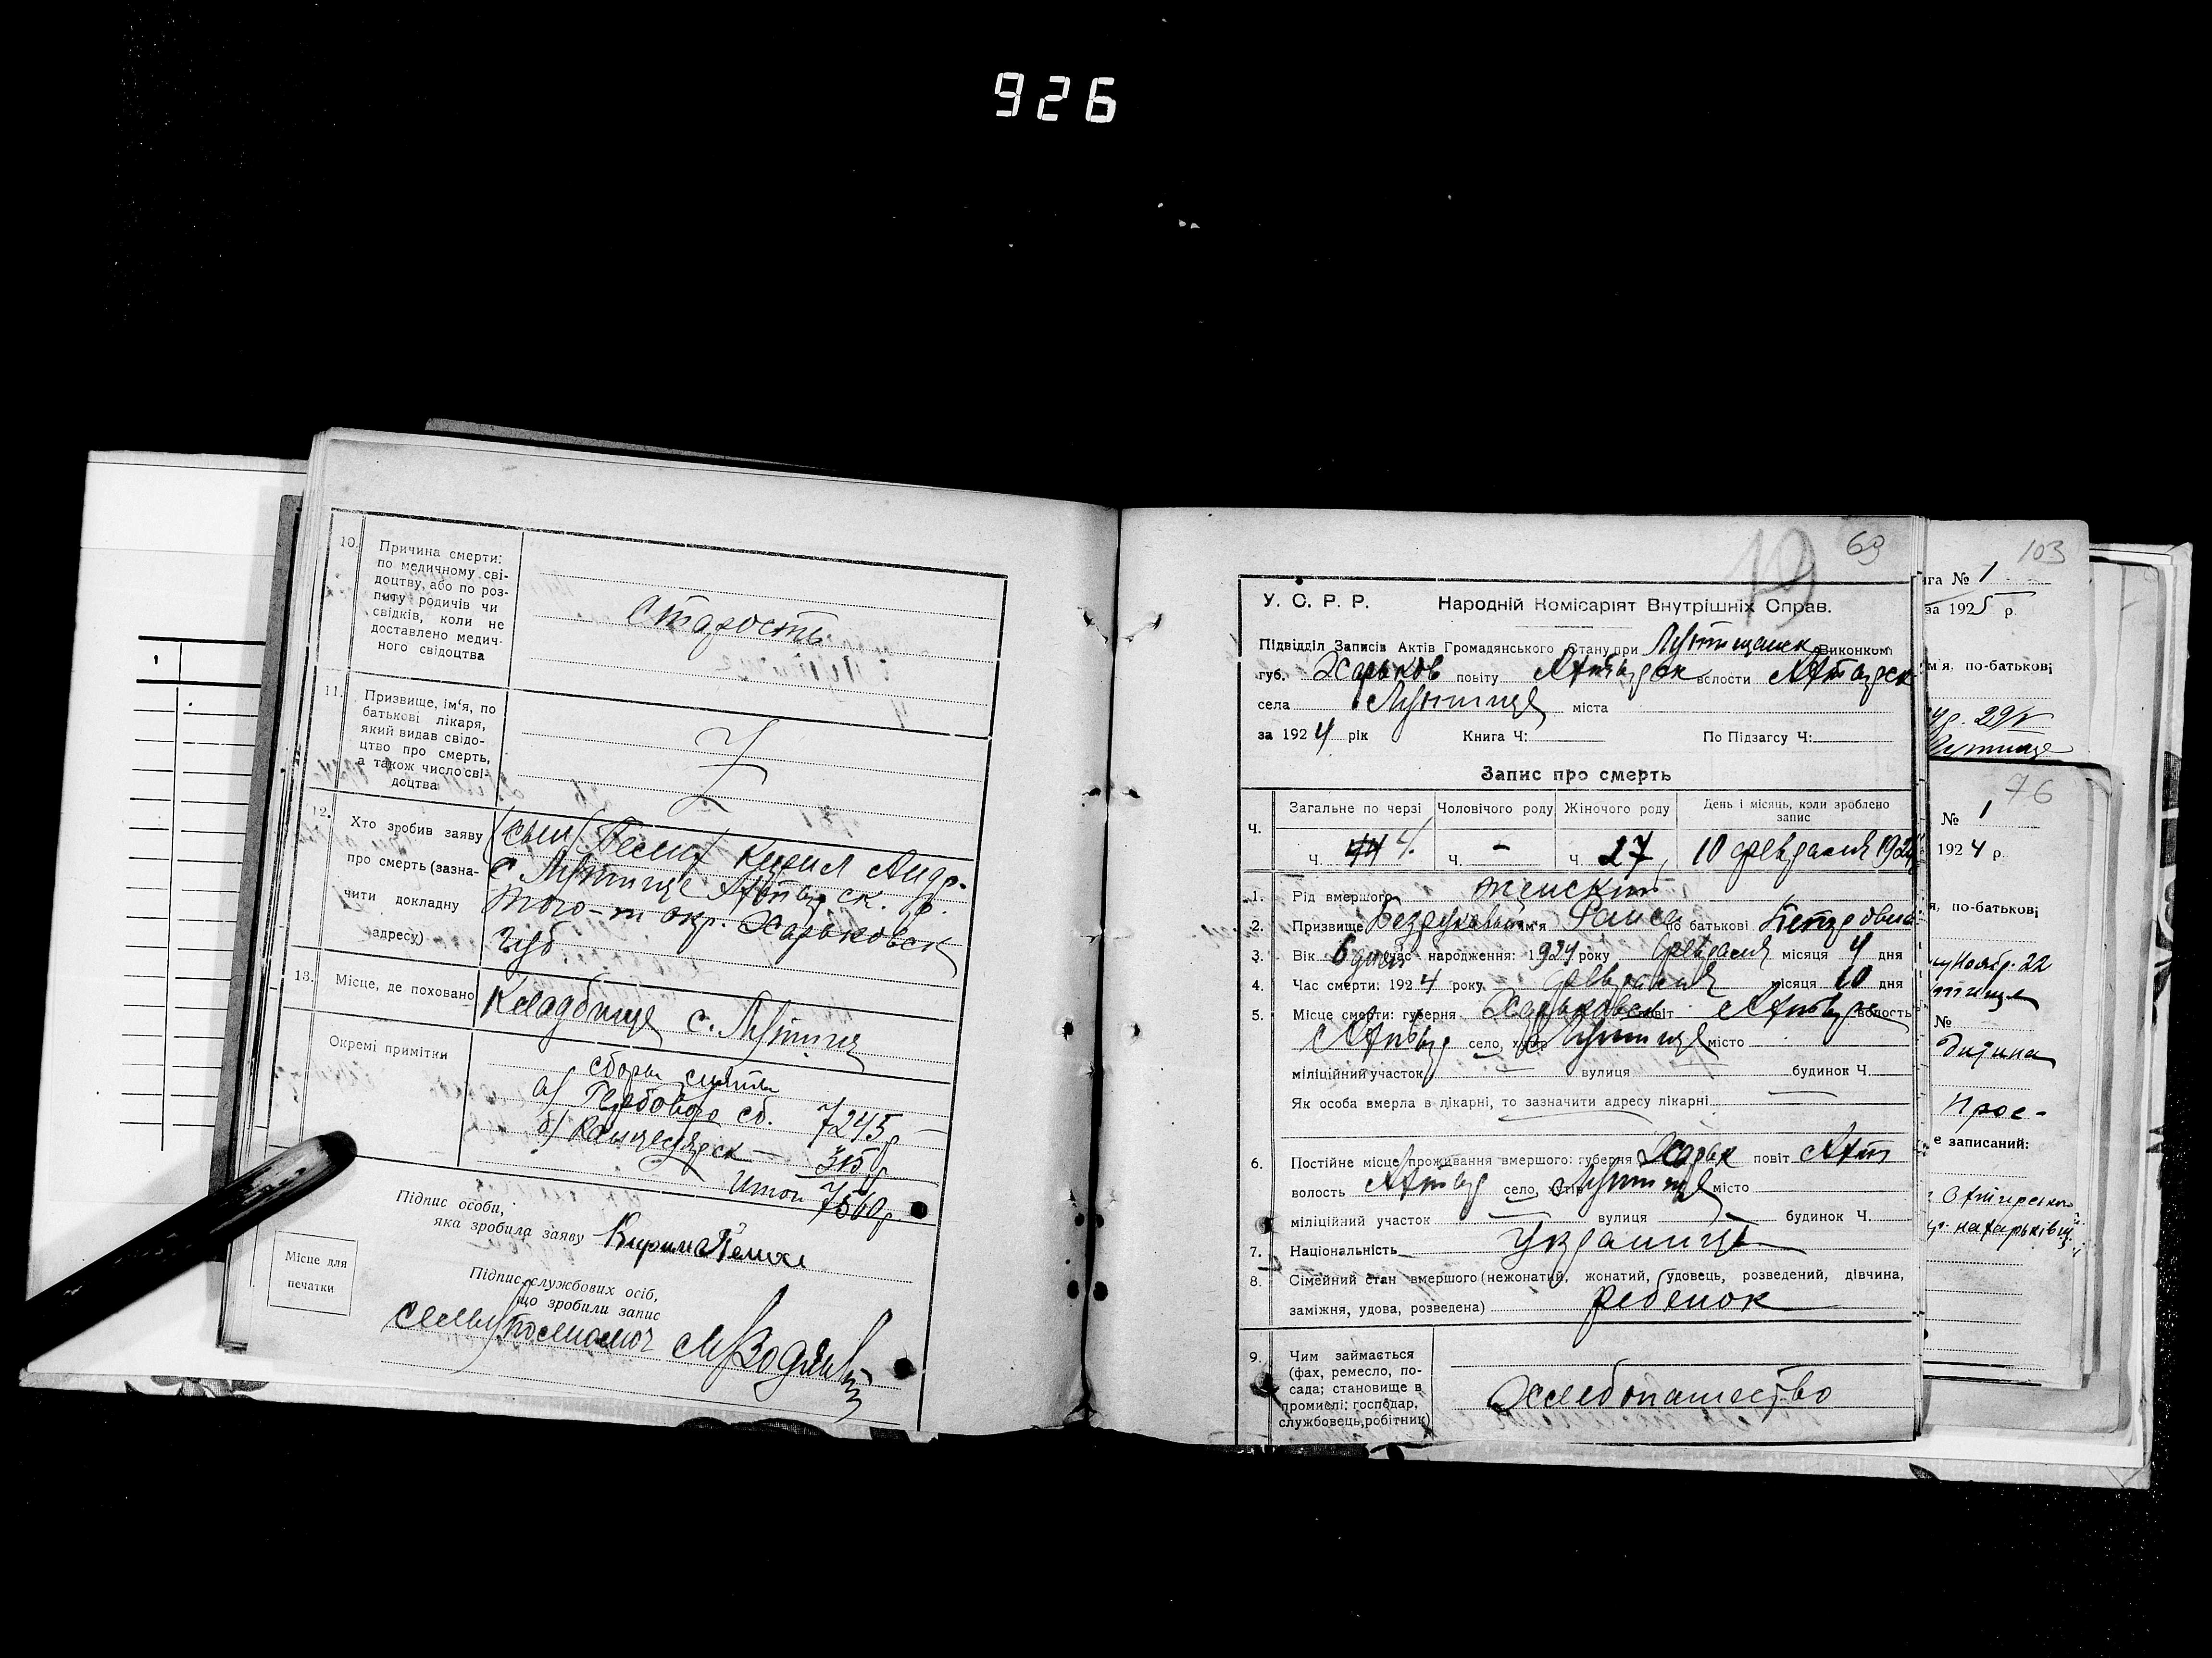 926
1
10.
Причина смерти:
по медичному сві-
доцтву, або по роз-
питу родичів чи
свідків, коли не
доставлено медич-
ного свідоцтва
старость
11.
Призвище, ім'я, по
батькові лікаря,
який видав свідо-
цтво про смерть,
а також число сві-
доцтва
Z
12.
Хто зробив заяву
про смерть (зазна-
чити докладну
адресу)
(сын) Кирил Андр.
с. Лутище Ахтырск. р.
того-ж окр. Харьковск
губ.
13.
Місце, де поховано
Кладбище с. Лутище
Окремі примітки
сборы сняты
а) Гербового сб. 7245 р
б) Канцелярск — 315 р
Итого 7560 р
Підпис особи,
яка зробила заяву Кирил
Місце для
печатки
Підпис службових осіб,
що зробили запис
69
У. С. Р. Р. Народній Комісаріят Внутрішніх Справ.
Підвідділ Записів Актів Громадянського Стану при Лутищанск Виконкомі
губ. Харьков повіту Ахтырск волости Ахтырск
села Лутище міста
за 1924 рік Книга Ч: По Підзагсу Ч:
Запис про смерть
Ч. Загальне по черзі Чоловічого роду Жіночого роду День і місяць, коли зроблено
запис
Ч. 4. Ч. - Ч. 27 10 февраля 1924
1. Рід вмершого женский
2. Призвище ім'я Раиса по батькові Петровна
3. Вік 6 дней Час народження: 1924 року февраля місяця 4 дня
4. Час смерти: 1924 року февраля місяця 10 дня
5. Місце смерти: губерня Харьковск повіт Ахтыр волость
Ахтыр село, хутір Лутище місто
міліційний участок вулиця будинок Ч.
Як особа вмерла в лікарні, то зазначити адресу лікарні
6. Постійне місце проживання вмершого: губерня Харьк повіт Ахт
волость Ахтыр село, хутір Лутище місто
міліційний участок вулиця будинок Ч.
7. Національність украинц
8. Сімейний стан вмершого (нежонатий, жонатий, удовець, розведений, дівчина,
заміжня, удова, розведена) ребенок
9. Чим займається
(фах, ремесло, по-
сада; становище в
промислі: господар,
службовець, робітник)
Хлебопашество
103
ига № 1
за 1925 р.
м'я, по-батькові
76
№ 1
1924 р.
я, по-батькові
Ноябр. 22
№
дитина
Прос-
е записаний: